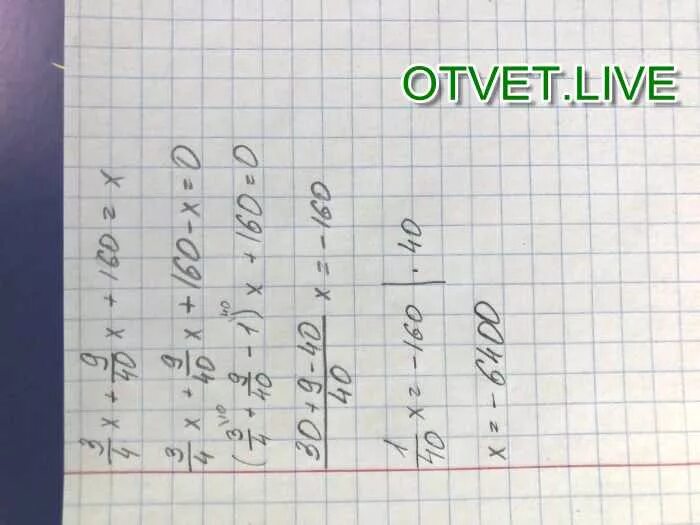 OTVET.LIVE
3/4 x + 9/40 x + 160 = x
3/4 x + 9/40 x + 160 - x = 0
(3/4 \10 + 9/40 - 1 \40) x + 160 = 0
30+9-40/40 x = -160
1/40 x = -160 | · 40
x = -6400